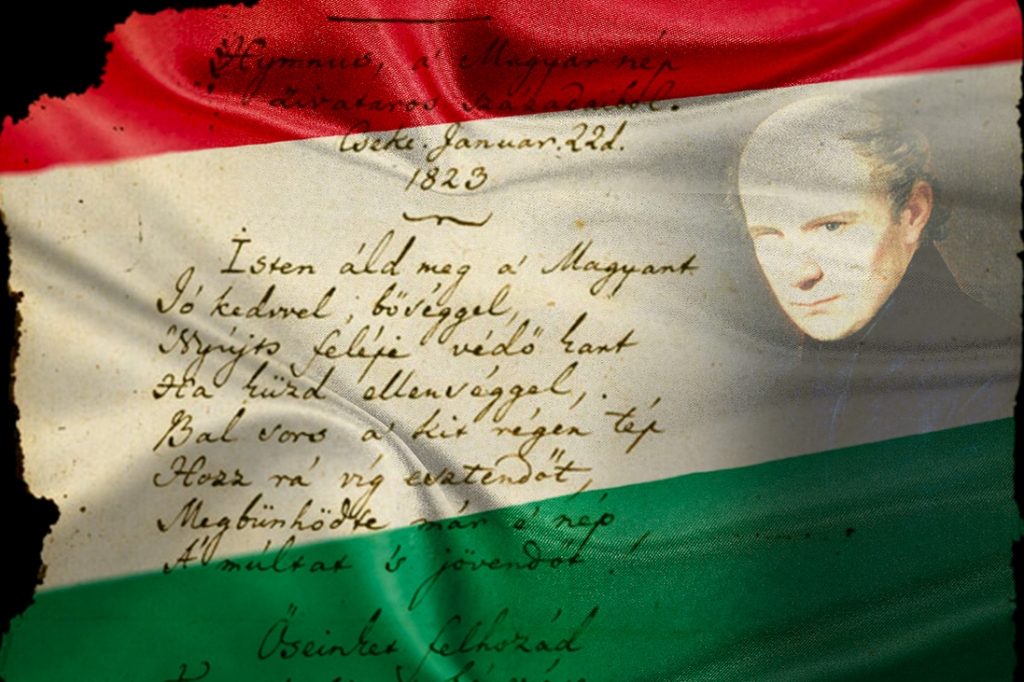 Hymnus, á Magyar nép
Zivataros századaiból.
Cseke. Januar. 22d.
1823
Isten áld meg a' Magyart
Jó kedvvel, bőséggel,
Nyújts feléje védő kart
Ha küzd ellenséggel,
Bal sors a' kit régen tép
Hozz rá víg esztendőt,
Megbűnhődte már e' nép
A' múltat 's jövendőt!
Őseinket felhozád